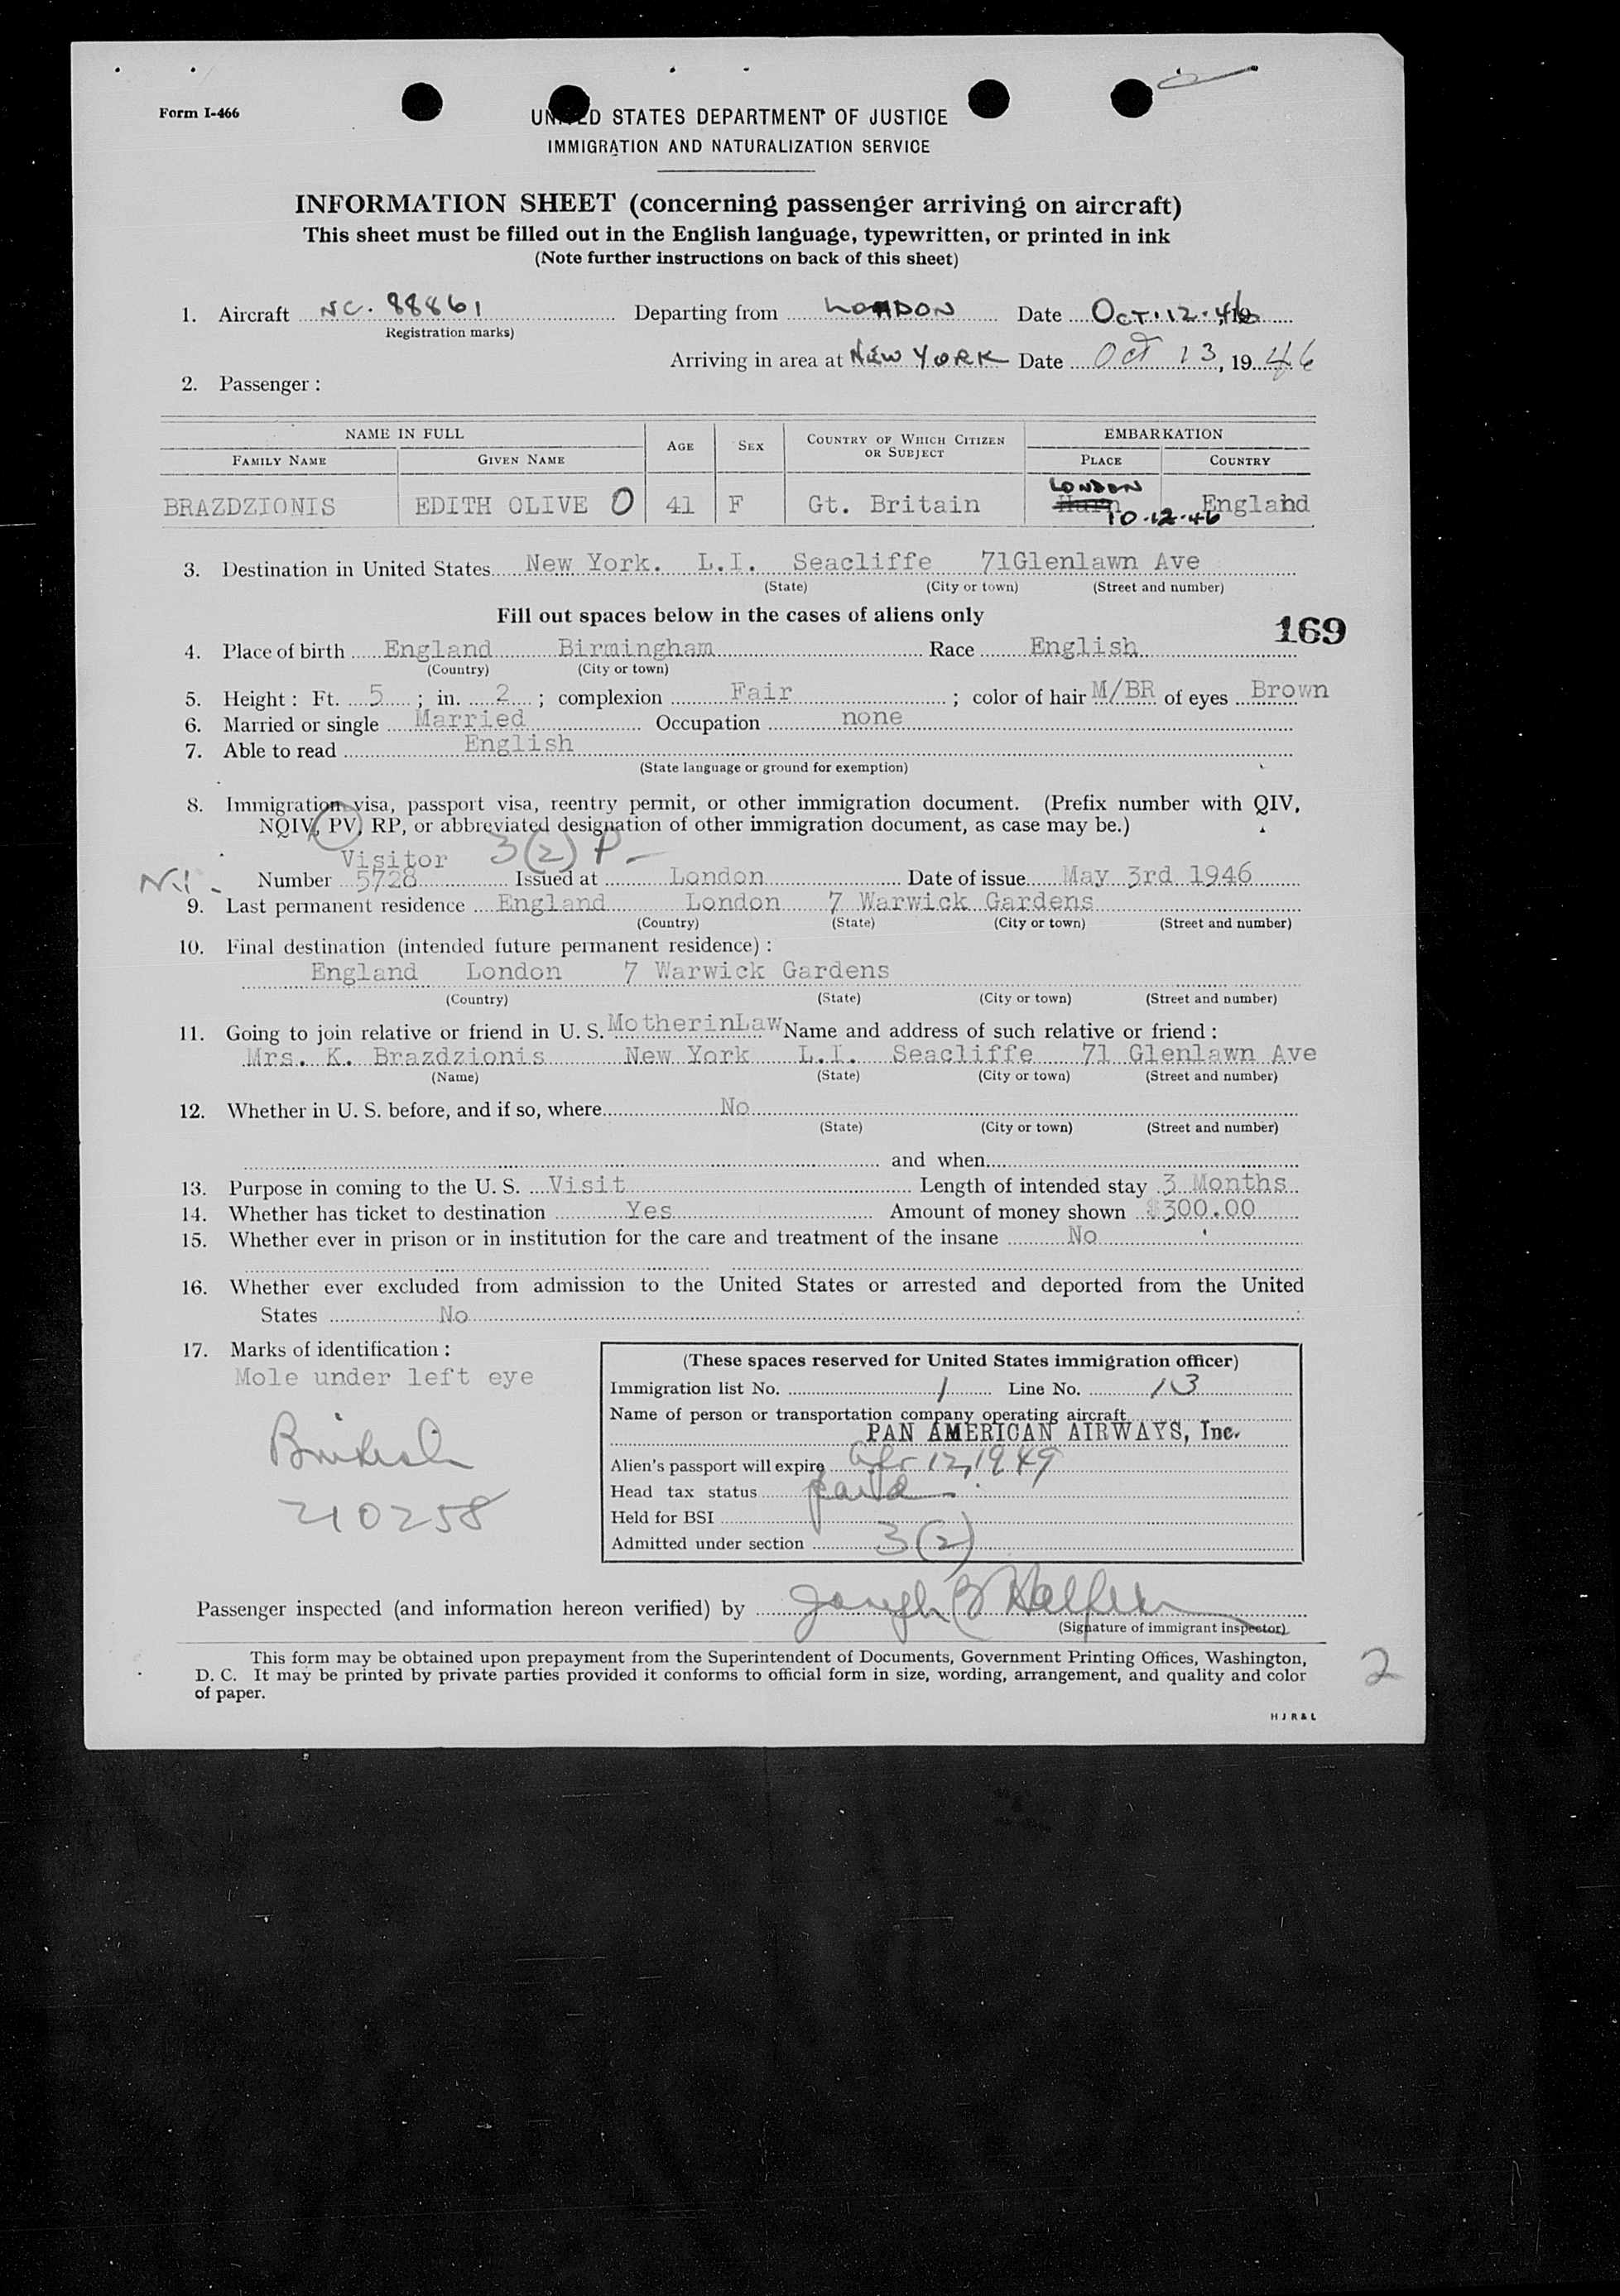 Form I-466
UNITED STATES DEPARTMENT OF JUSTICE
IMMIGRATION AND NATURALIZATION SERVICE
INFORMATION SHEET (concerning passenger arriving on aircraft)
This sheet must be filled out in the English language, typewritten, or printed in ink
(Note further instructions on back of this sheet)
1. Aircraft NC. 88861 Departing from LONDON Date OCT. 12. 46
(Registration marks)
Arriving in area at NEW YORK Date Oct 13, 1946
2. Passenger :
NAME IN FULL AGE SEX COUNTRY OF WHICH CITIZEN OR SUBJECT EMBARKATION
FAMILY NAME GIVEN NAME PLACE COUNTRY
LONDON
BRAZDZIONIS EDITH OLIVE O 41 F Gt. Britain Hurn England
10.12.46
3. Destination in United States New York. L.I. Seacliffe 71Glenlawn Ave
(State) (City or town) (Street and number)
Fill out spaces below in the cases of aliens only
169
4. Place of birth England Birmingham Race English
(Country) (City or town)
5. Height : Ft. 5 ; in. 2 ; complexion Fair ; color of hair M/BR of eyes Brown
6. Married or single Married Occupation none
7. Able to read English
(State language or ground for exemption)
8. Immigration visa, passport visa, reentry permit, or other immigration document. (Prefix number with QIV,
NQIV, PV, RP, or abbreviated designation of other immigration document, as case may be.)
Visitor 3(2) P-
N.I. - Number 5728 Issued at London Date of issue May 3rd 1946
9. Last permanent residence England London 7 Warwick Gardens
(Country) (State) (City or town) (Street and number)
10. Final destination (intended future permanent residence) :
England London 7 Warwick Gardens
(Country) (State) (City or town) (Street and number)
11. Going to join relative or friend in U. S. MotherinLaw Name and address of such relative or friend :
Mrs. K. Brazdzionis New York L.I. Seacliffe 71 Glenlawn Ave
(Name) (State) (City or town) (Street and number)
12. Whether in U. S. before, and if so, where No
(State) (City or town) (Street and number)
and when
13. Purpose in coming to the U. S. Visit Length of intended stay 3 Months
14. Whether has ticket to destination Yes Amount of money shown $300.00
15. Whether ever in prison or in institution for the care and treatment of the insane No
16. Whether ever excluded from admission to the United States or arrested and deported from the United
States No
17. Marks of identification :
Mole under left eye
British
210258
(These spaces reserved for United States immigration officer)
Immigration list No. 1 Line No. 13
Name of person or transportation company operating aircraft
PAN AMERICAN AIRWAYS, Inc.
Alien's passport will expire Apr 12, 1949
Head tax status paid
Held for BSI
Admitted under section 3(2)
Passenger inspected (and information hereon verified) by Joseph B Halpern
(Signature of immigrant inspector)
This form may be obtained upon prepayment from the Superintendent of Documents, Government Printing Offices, Washington,
D. C. It may be printed by private parties provided it conforms to official form in size, wording, arrangement, and quality and color
of paper.
2
H J R & L